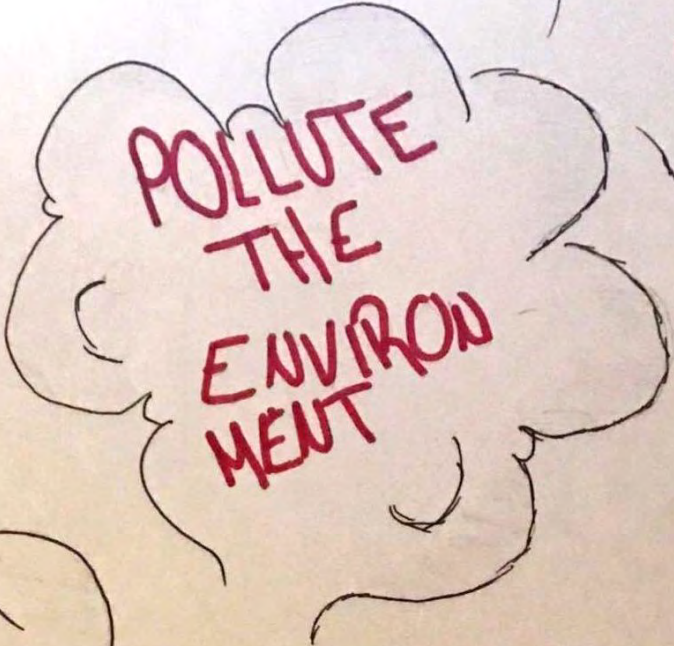 POLLUTE
THE
ENVIRON
MENT